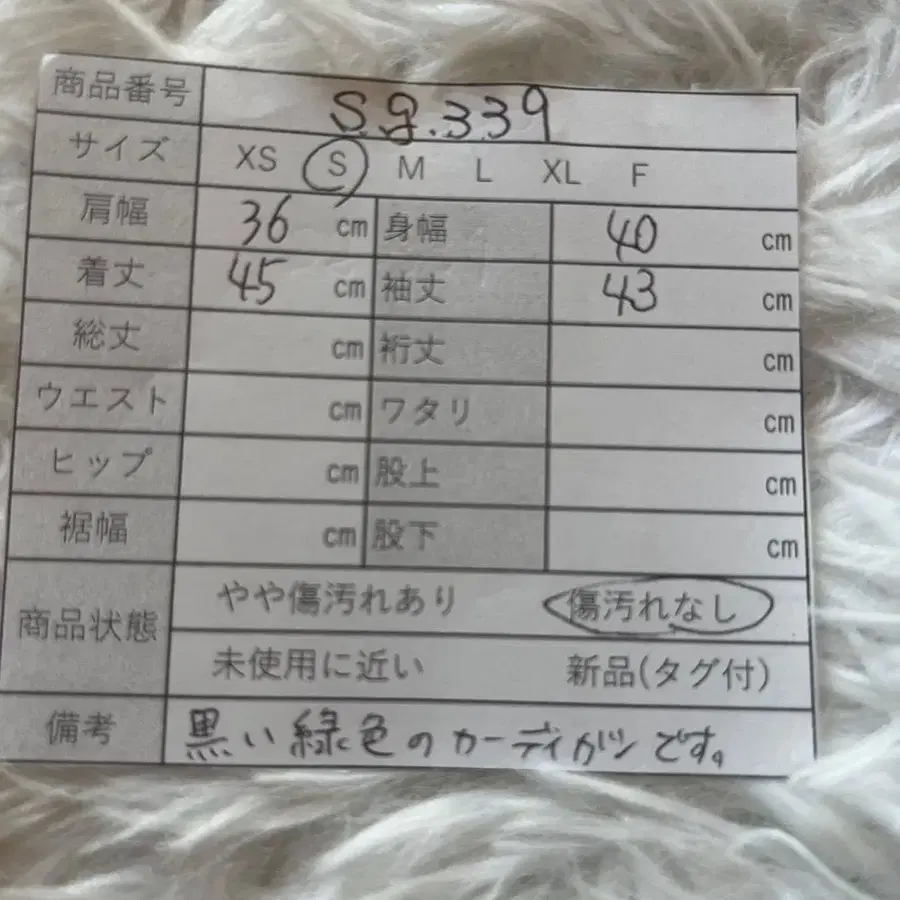 商品番号 S.g.339
サイズ XS S M L XL F
肩幅 36 cm 身幅 40 cm
着丈 45 cm 袖丈 43 cm
総丈 cm 裄丈 cm
ウエスト cm ワタリ cm
ヒップ cm 股上 cm
裾幅 cm 股下 cm
商品状態 やや傷汚れあり 傷汚れなし
未使用に近い 新品(タグ付)
備考 黒い緑色のカーディガンです。